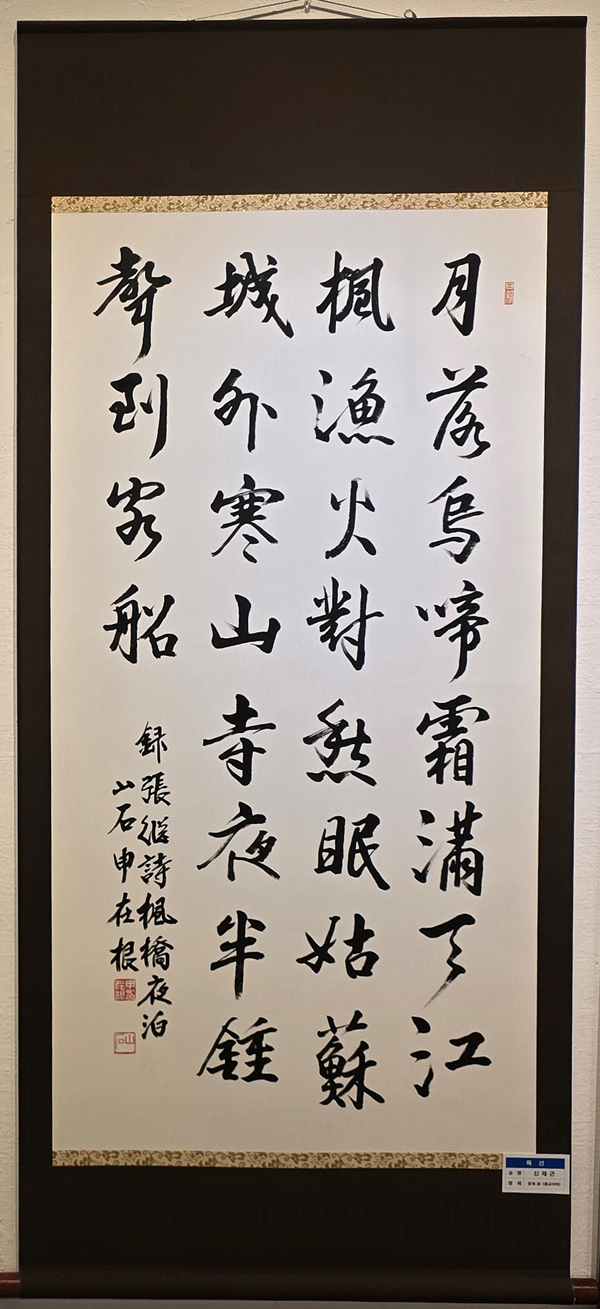 月落烏啼霜滿天江
楓漁火對愁眠姑蘇
城外寒山寺夜半鍾
聲到客船
録張繼詩楓橋夜泊
山石申在根
특선
성명 신재근
명제